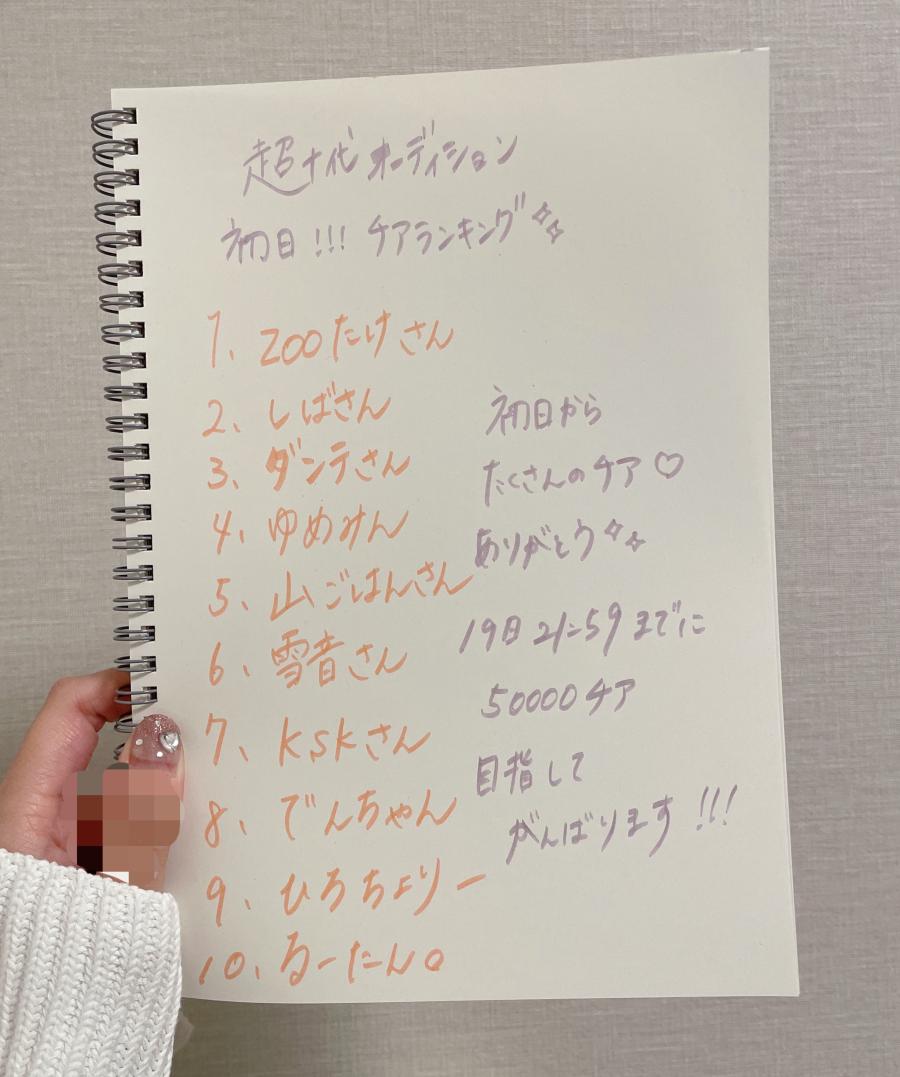 超十代オーディション
初日!!! チアランキング
1、Zooたけさん
2、しばさん
3、ダンテさん
4、ゆめみん
5、山ごはんさん
6、雪音さん
7、kskさん
8、でんちゃん
9、ひろちよりー
10、るーたん。
初日から
たくさんのチア♡
ありがとう
19日21:59までに
50000チア
目指して
がんばります!!!